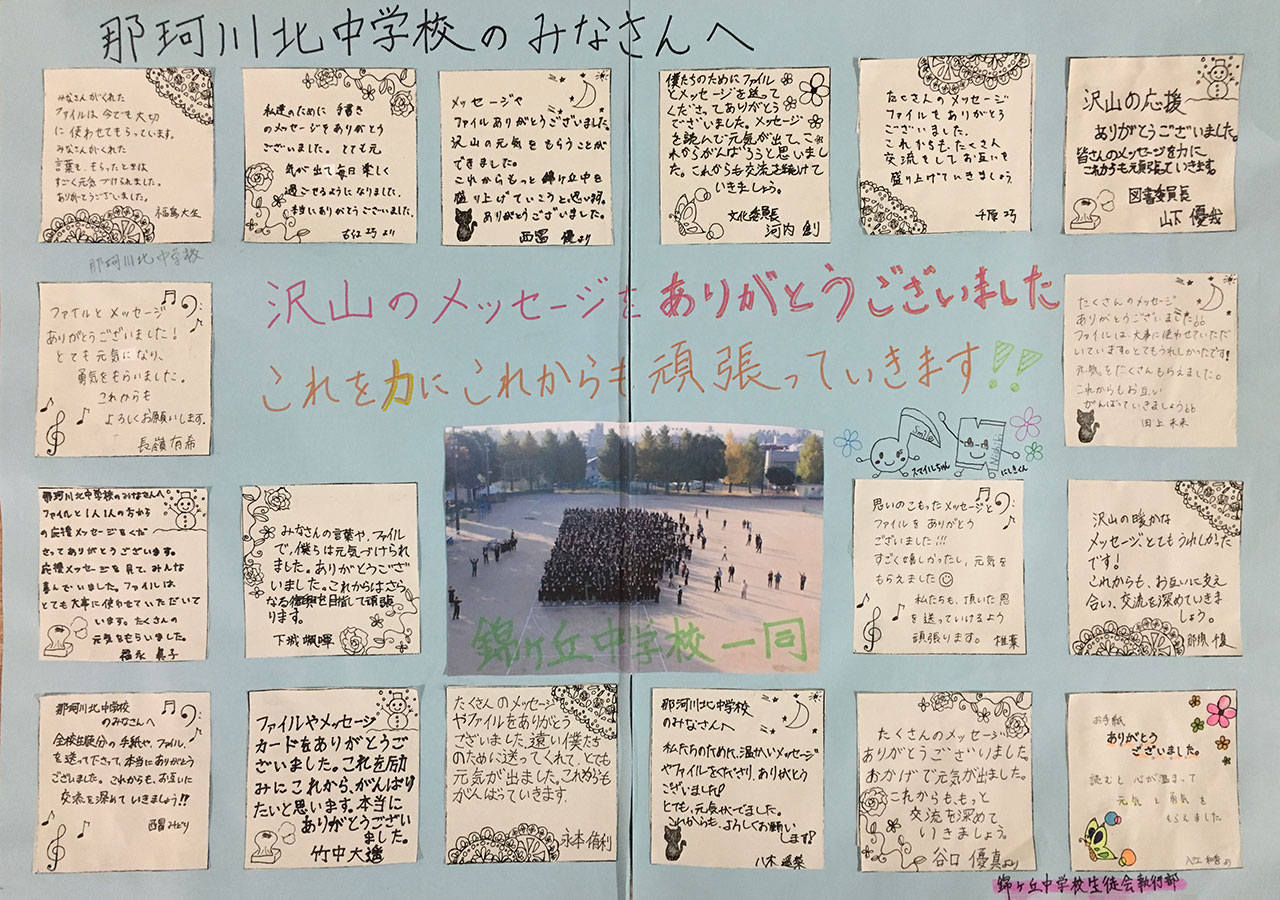 那珂川北中学校のみなさんへ
みなさんがくれた
ファイルは今でも大切
に使わせてもらっています。
みなさんがくれた
言葉をもらったときは
すごく元気づけられました。
ありがとうございました。
私達のために手書き
のメッセージをありがとう
ございました。とても元
気が出て毎日楽しく
過ごせるようになりました。
本当にありがとうございました。
メッセージや
ファイルありがとうございました。
沢山の元気をもらうことが
できました。
これからもっと錦ヶ丘中を
盛り上げていこうと思います。
ありがとうございました。
西冨 優より
僕たちのためにファイル
とメッセージを送って
くださってありがとう
でございました。メッセージ
を読んで元気が出て、こ
れからがんばろうと思いまし
た。これからも交流を続けて
いきましょう。
文化委員長
河内 創
たくさんのメッセージ
ファイルをありがとう
ございました。
これからもたくさん
交流をしてお互いを
盛り上げていきましょう。
沢山の応援
ありがとうございました。
皆さんのメッセージを力に
これからも頑張っていきます。
図書委員長
山下 優哉
那珂川北中学校
沢山のメッセージをありがとうございました
これを力にこれからも頑張っていきます!!
ファイルとメッセージ
ありがとうございました!
とても元気になり、
勇気をもらいました。
これからも
よろしくお願いします。
長嶺 有希
たくさんのメッセージ
ありがとうございました!!
ファイルは、大事に使わせていただ
いています。とてもうれしかったです!
元気をたくさんもらえました。
これからもお互い
がんばっていきましょう!!
田上 未来
Smile
スマイルちゃん
にしきくん
那珂川北中学校のみなさんへ
ファイルと1人1人の方から
の応援メッセージをくだ
さってありがとうございます。
応援メッセージを見て、みんな
喜んでいました。ファイルは、
とても大事に使わせていただいて
います。たくさんの
元気をもらいました。
福永 真子
みなさんの言葉や、ファイル
で、僕らは元気づけられ
ました。ありがとうござ
いました。これからはさら
なる復興を目指して頑張
ります。
錦ヶ丘中学校一同
思いのこもったメッセージと
ファイルをありがとう
ございました!!!
すごく嬉しかったし、元気を
もらえました
私たちも、頂いた恩
を送っていけるよう
頑張ります。 椎葉
沢山の暖かな
メッセージ、とてもうれしかった
です!
これからも、お互いに支え
合い、交流を深めていきま
しょう。
那珂川北中学校
のみなさんへ
全校生徒分の手紙や、ファイル、
を送って下さって、本当にありがとう
ございました。これからも、お互いに
交流を深めていきましょう!!
西冨 みどり
ファイルやメッセージ
カードをありがとうご
ざいました。これを励
みにこれから、がんばり
たいと思います。本当に
ありがとうござい
ました。
竹中 大遥
たくさんのメッセージ
やファイルをありがとう
ございました。遠い僕たち
のために送ってくれて、とても
元気が出ました。これからも
がんばっていきます。
那珂川北中学校
のみなさんへ
私たちのために、温かいメッセージ
やファイルをくださり、ありがとう
ございました!
とても、元気がでました。
これからも、よろしくお願い
します!
たくさんのメッセージ
ありがとうございました。
おかげで元気が出ました。
これからも、もっと
交流を深めて
いきましょう。
谷口 優真より
お手紙
ありがとう
ございました。
読むと心が温まって
元気と勇気を
もらえました
錦ヶ丘中学校生徒会執行部